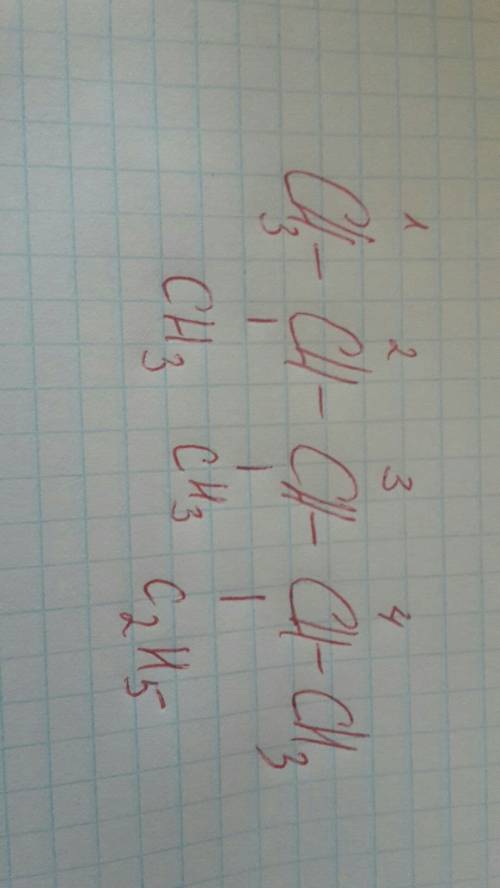 1 2 3 4
CH3 – CH – CH – CH – CH3
| | |
CH3 CH3 C2H5